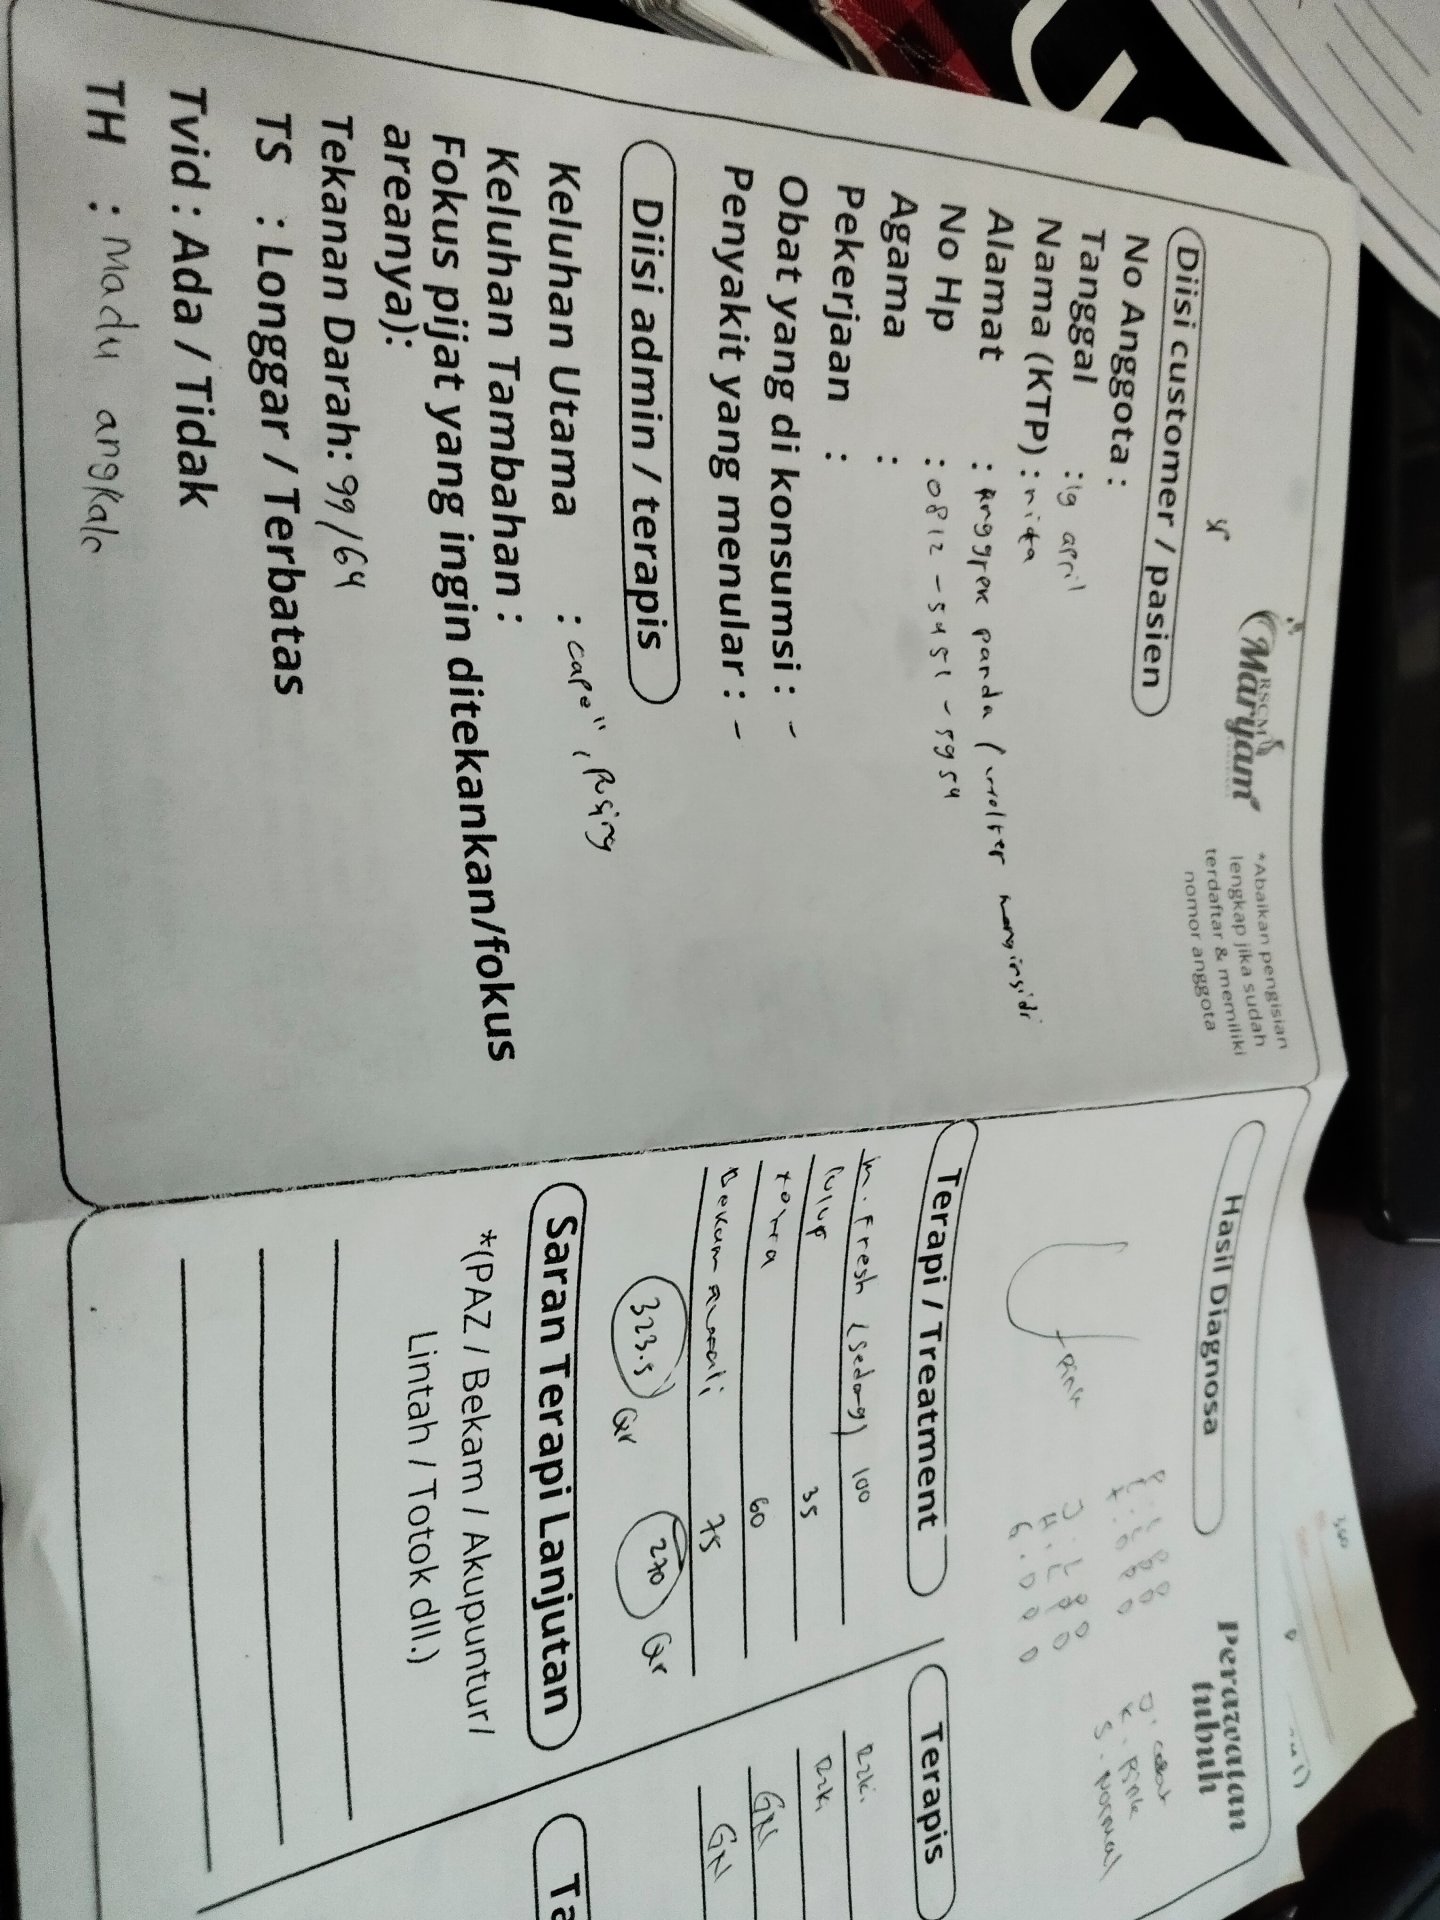 RSCM
Maryam
*Abaikan pengisian
lengkap jika sudah
terdaftar & memiliki
nomor anggota
Diisi customer / pasien
No Anggota :
Tanggal : 19 april
Nama (KTP) : nita
Alamat : Anggrek panda (wolter
No Hp : 0812-5451-5954
Agama :
Pekerjaan :
Obat yang di konsumsi : -
Penyakit yang menular : -
Diisi admin / terapis
Keluhan Utama : cape", Pusing
Keluhan Tambahan :
Fokus pijat yang ingin ditekankan/fokus
areanya):
Tekanan Darah: 99/64
TS : Longgar / Terbatas
Tvid : Ada / Tidak
TH : Madu angkak
Hasil Diagnosa
Perawatan
tubuh
Pink
K. Pink
S. Normal
Terapi / Treatment
Terapis
M. Fresh (sedang) 100
Rizki
35
Rizki
60
GN
Bekam 75
GN
323.5 Qr
270 Qr
Saran Terapi Lanjutan
*(PAZ / Bekam / Akupuntur/
Lintah / Totok dll.)
Ta